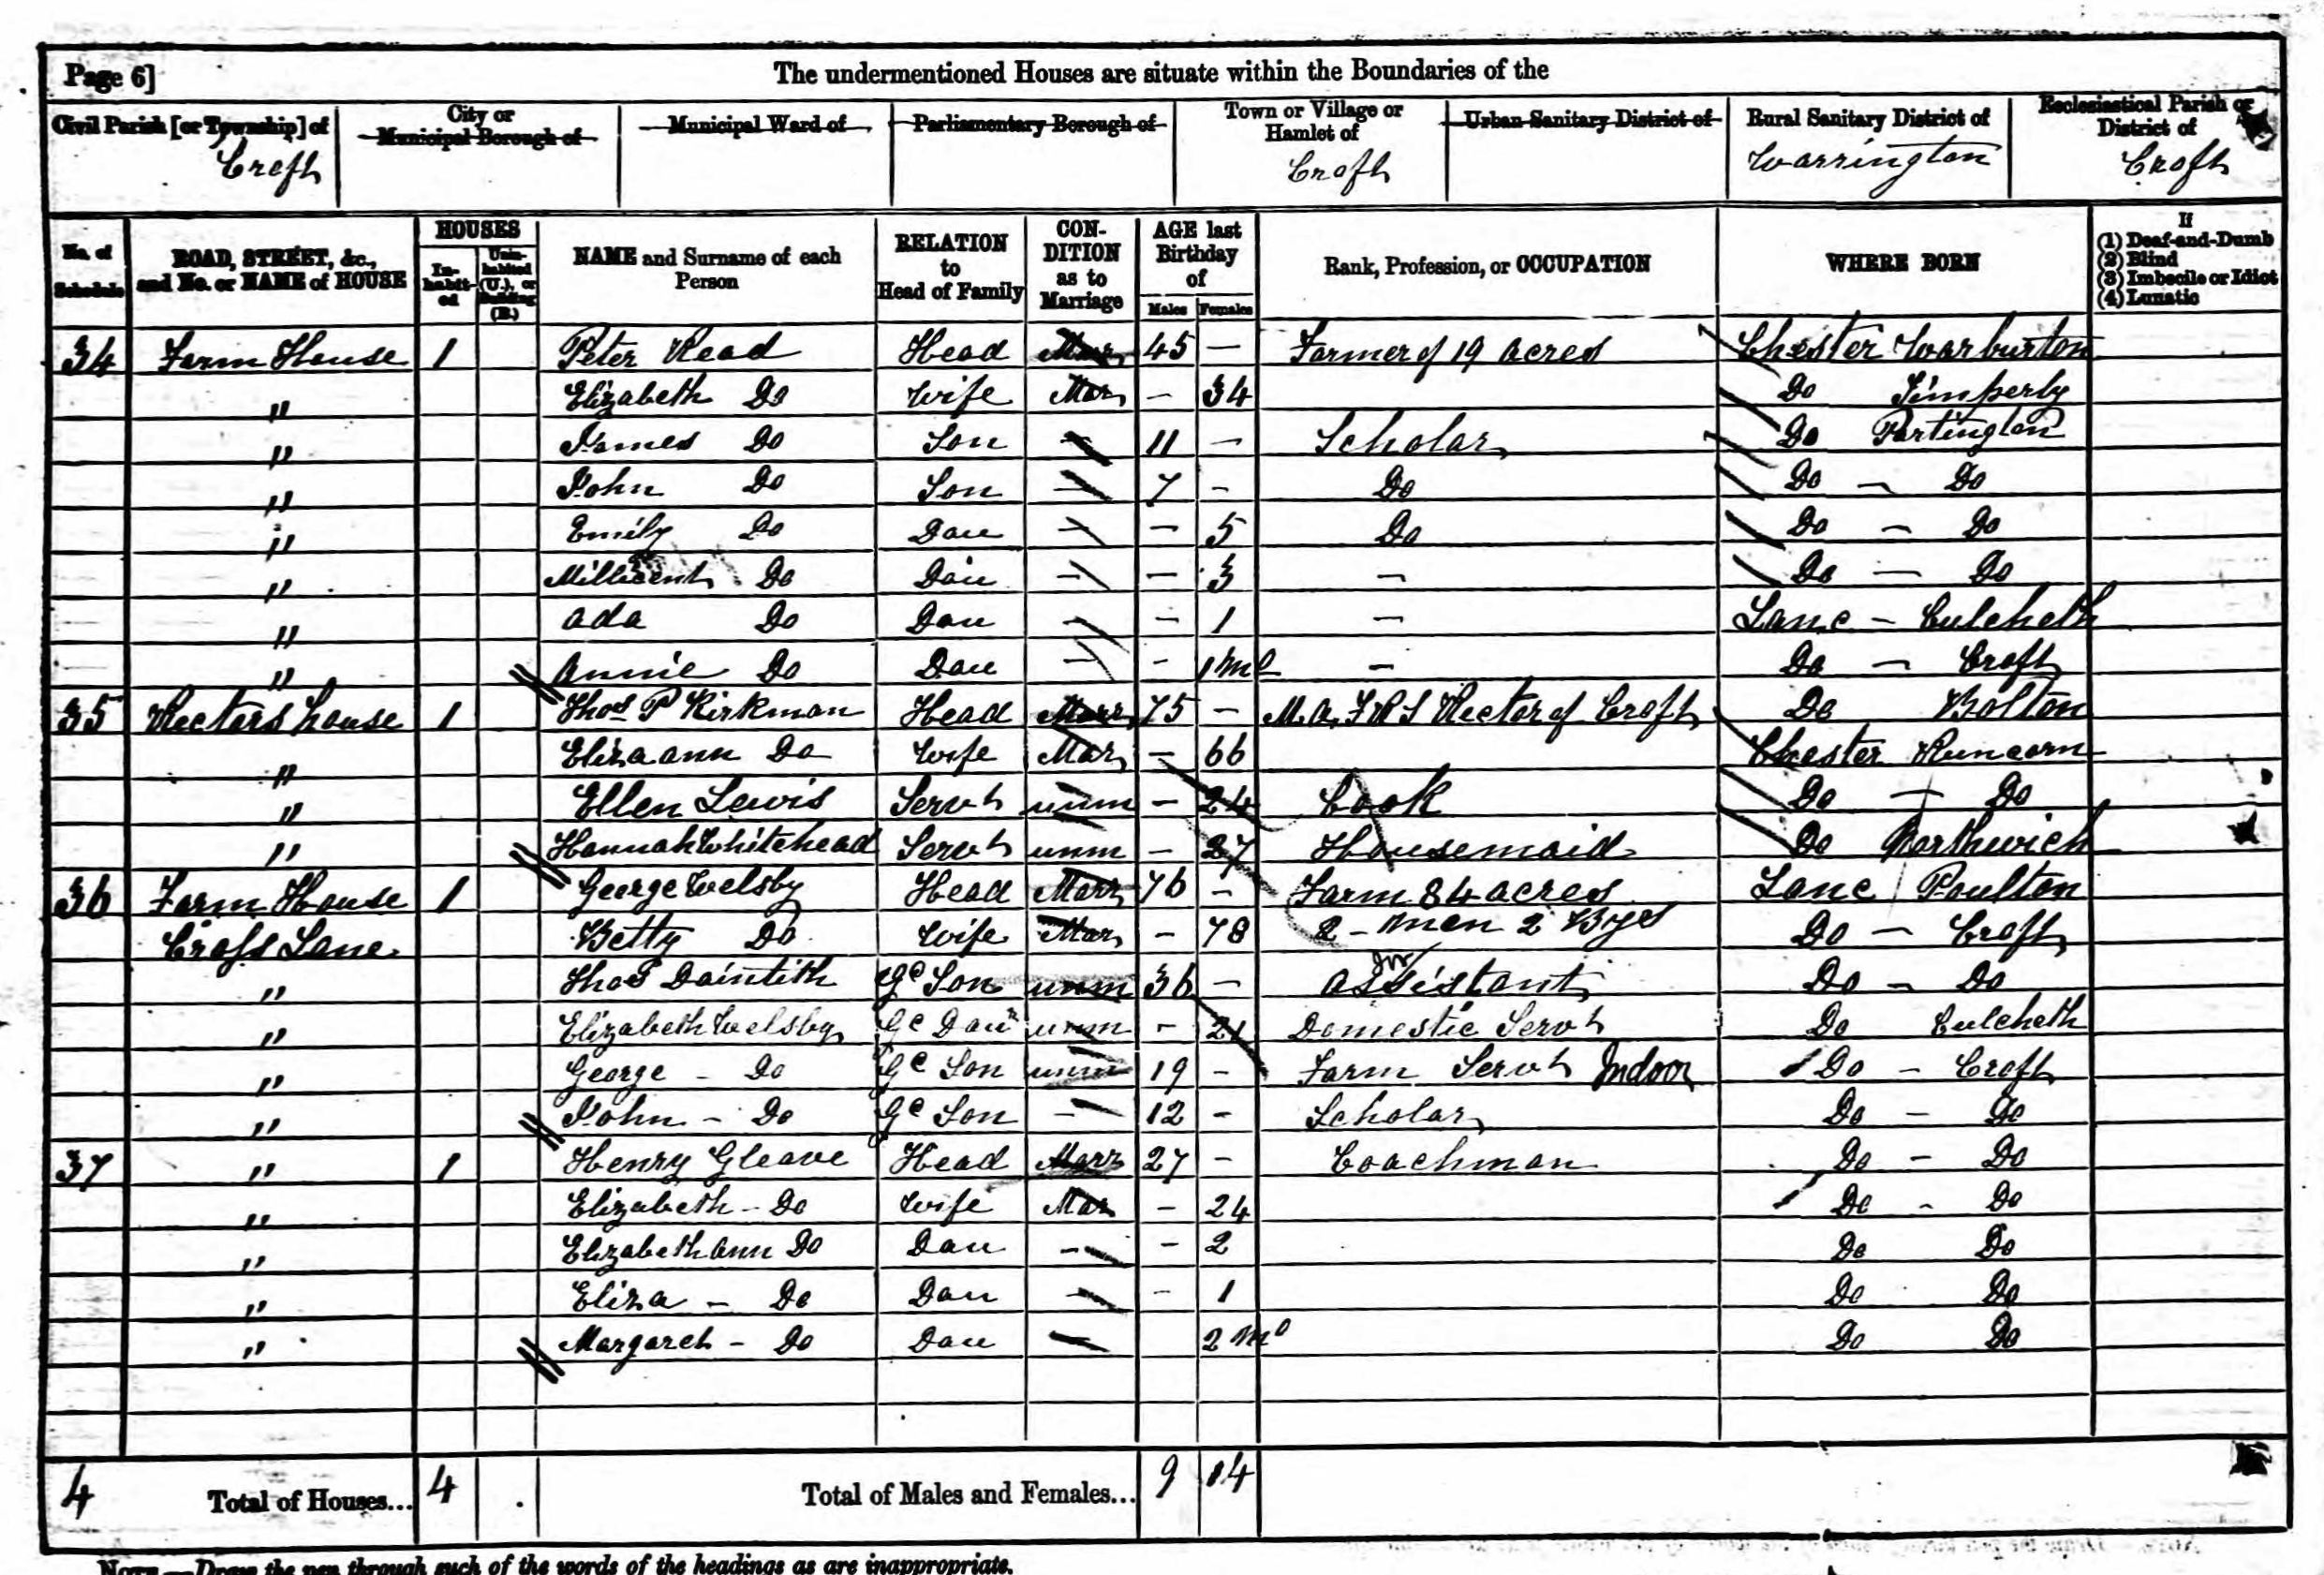 Page 6]
The undermentioned Houses are situate within the Boundaries of the
Civil Parish [or Township] of
Croft
City or
Municipal Borough of
Municipal Ward of
Parliamentary Borough of
Town or Village or
Hamlet of
Croft
Urban Sanitary District of
Rural Sanitary District of
Warrington
Ecclesiastical Parish or
District of
Croft
No. of
Schedule
ROAD, STREET, &c.,
and No. or NAME of HOUSE
HOUSES
In-
habit-
ed
Unin-
habited
(U.), or
Building
(B.)
NAME and Surname of each
Person
RELATION
to
Head of Family
CON-
DITION
as to
Marriage
AGE last
Birthday
of
Males Females
Rank, Profession, or OCCUPATION
WHERE BORN
If
(1) Deaf-and-Dumb
(2) Blind
(3) Imbecile or Idiot
(4) Lunatic
34 Farm House 1 Peter Read Head Mar 45 — Farmer of 19 acres Chester Warburton
" Elizabeth Do Wife Mar — 34 Do Timperly
" James Do Son — 11 — Scholar Do Partington
" John Do Son — 7 — Do Do — Do
" Emily Do Dau — — 5 Do Do — Do
" Millicent Do Dau — — 3 — Do — Do
" Ada Do Dau — — 1 — Lanc — Culcheth
" Annie Do Dau — — 1 mo — Do — Croft
35 Rectors house 1 Thos P Kirkman Head Marr 75 — M.A. F.R.S Rector of Croft Do Bolton
" Eliza ann Do Wife Mar — 66 Chester Runcorn
" Ellen Lewis Servt unm — 24 Cook Do — Do
" Hannah Whitehead Servt unm — 27 Housemaid Do Northwich
36 Farm House 1 George Welsby Head Marr 76 — Farm 84 acres Lanc Poulton
Cross Lane Betty Do Wife Mar — 78 2 — men 2 Bys Do — Croft
" Thos Daintith Gd Son unm 36 — Assistant Do — Do
" Elizabeth Welsby Gd Daur unm — 21 Domestic Servt Do Culcheth
" George — Do Gd Son unm 19 — Farm Servt Indoor Do — Croft
" John — Do Gd Son — 12 — Scholar Do — Do
37 " 1 Henry Gleave Head Marr 27 — Coachman Do — Do
" Elizabeth — Do Wife Mar — 24 Do — Do
" Elizabeth Ann Do Dau — — 2 Do Do
" Eliza — Do Dau — — 1 Do Do
" Margaret — Do Dau — 2 mo Do Do
4 Total of Houses... 4 Total of Males and Females... 9 14
NOTE.—Draw the pen through such of the words of the headings as are inappropriate.